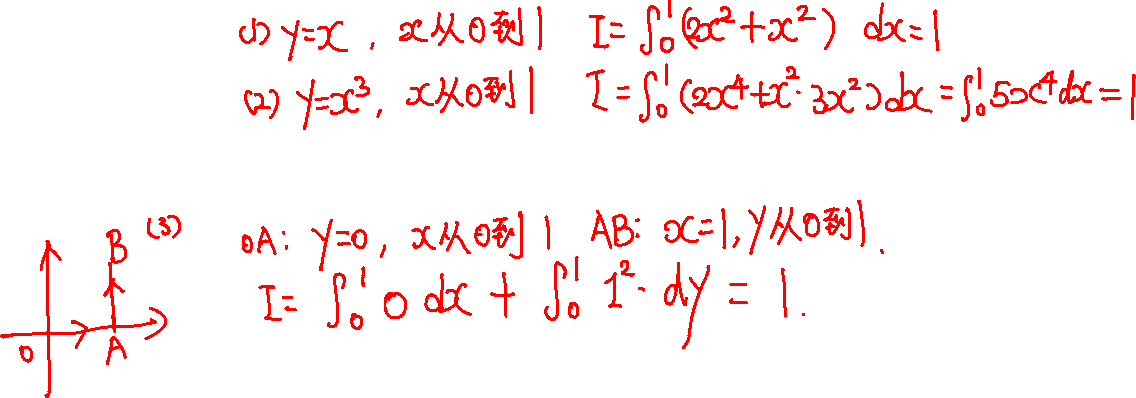 (1) y=x, x从0到1 I=∫₀¹(2x²+x²) dx=1
(2) y=x³, x从0到1 I=∫₀¹(2x⁴+x²·3x²)dx=∫₀¹5x⁴dx=1
(3) OA: y=0, x从0到1 AB: x=1, y从0到1.
I=∫₀¹ 0 dx + ∫₀¹ 1²·dy = 1.
B
O A